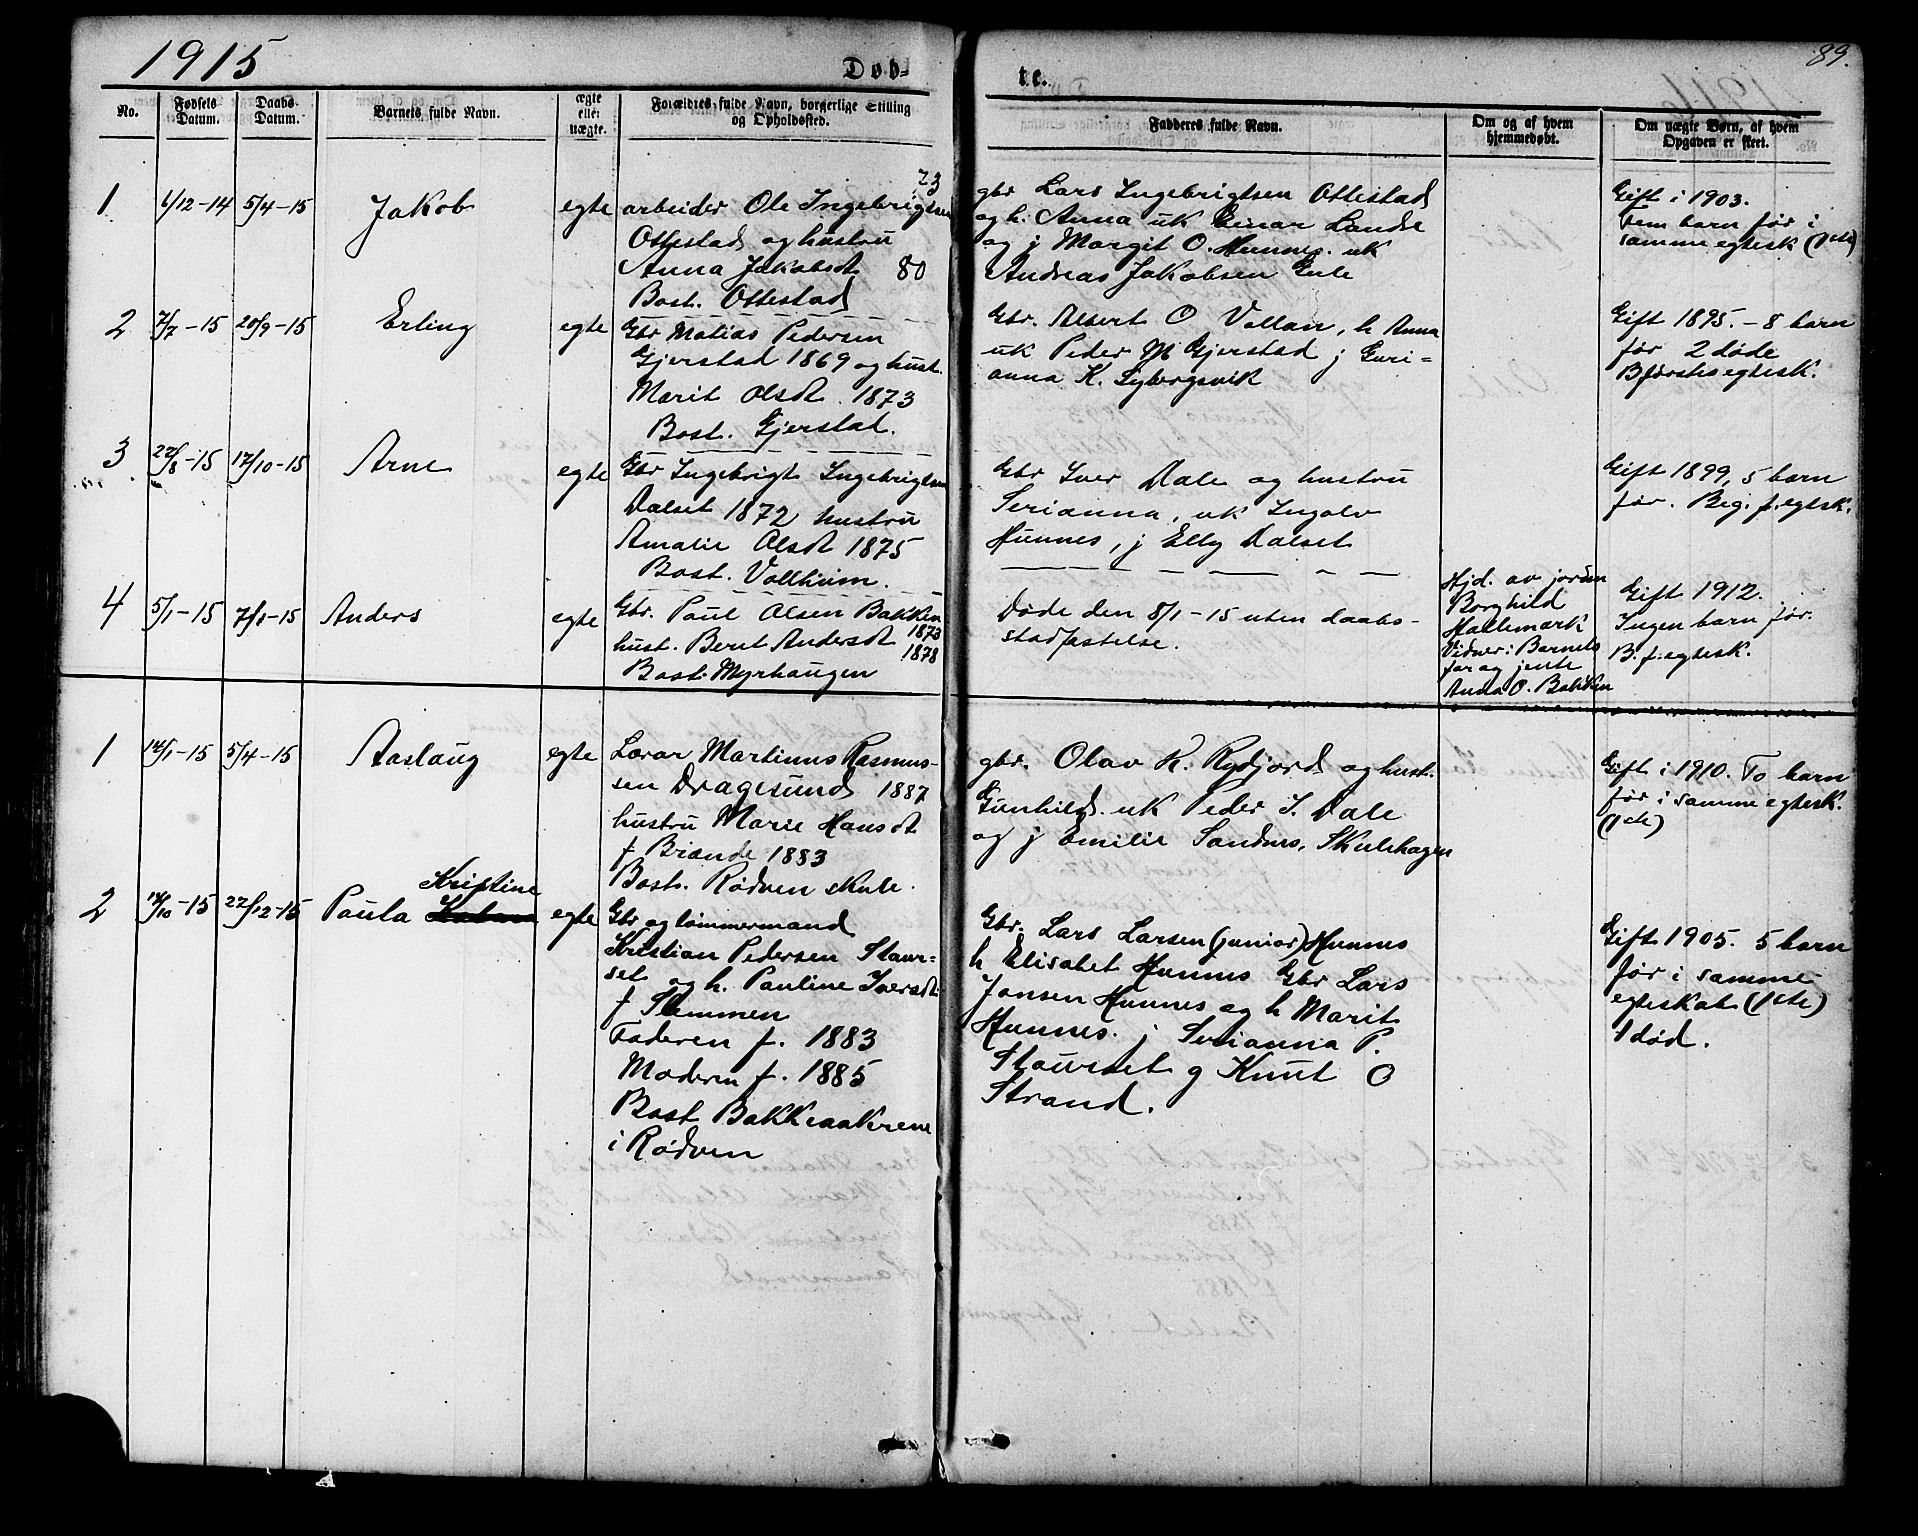 1915
Døb-
te.
89.
No.
Fødsels Datum.
Daabs Datum.
Barnets fulde Navn.
ægte eller uægte.
Forældres fulde Navn, borgerlige Stilling og Opholdssted.
Fadderes fulde Navn.
Om og af hvem hjemmedøbt.
Om uægte Børn, af hvem Opgaven er skeet.
1
6/12-14
5/4-15
Jakob
egte
arbeider Ole Ingebrigtsen 73
Ottestad og hustru
Anna Jakobsdt 80
Bost. Ottestad
gbr Lars Ingebrigtsen Ottestad
og h. Anna uk Einar Lande
og j Margit O. Hunnes. uk
Andreas Jakobsen
Gift i 1903.
Fem barn før i
samme egtesk (1ste)
2
7/7-15
20/9-15
Erling
egte
Gbr Matias Pedersen
Gjerstad 1869 og hust.
Marit Olsdt. 1873
Bost. Gjerstad.
Gbr. Albert O Vollan, h Anna
uk Peder M Gjerstad j Guri=
anna K. Lybergsvik
Gift 1895. - 8 barn
før 2 døde
B første egtesk.
3
22/8-15
17/10-15
Arne
egte
Gbr Ingebrigt Ingebrigtsen
Dalset 1872 hustru
Amalie Olsdt 1875
Bost. Vollheim.
Gbr Iver Dale og hustru
Serianna, uk Ingolv
Hunnes, j Elly Dalset
Gift 1899, 5 barn
før. Beg. f. egtesk.
4
5/1-15
7/1-15
Anders
egte
Gbr. Paul Olsen Bakken
1873
hust. Berit Andersdt
1878
Bost. Myrhaugen
Døde den 8/1-15 uten daabs-
stadfæstelse.
Hjd. av jordm
Borghild
Hallemark
Vidner: Barnets
far og jente
Anna O. Bakken
Gift 1912.
Ingen barn før.
B. f. egtesk.
1
14/1-15
5/4-15
Aaslaug
egte
Lærar Martinus Rasmus-
sen Dragesund 1887
hustru Marie Hansdt
f Brande 1883
Bost. Rødven skule.
gbr. Olav K. Rydjord og hust.
Gunhild. uk Peder I. Dale
og j Emilie Sandnes, Skulehagen
Gift i 1910. To barn
før i samme egtesk.
(1ste)
2
14/10-15
22/12-15
Kristine
Paula
egte
Gbr og tømmermand
Kristian Pedersen Staur-
set og h. Pauline Iversdt
f Stemmen
Faderen f. 1883
Moderen f. 1885
Bost Bakkeaakrene
i Rødven
Gbr. Lars Larsen (junior) Hunnes
h Elisabet Hunnes Gbr Lars
Jonsen Hunnes og h Marit
Hunnes. j Serianna P.
Staurset g Knut O
Strand.
Gift 1905. 5 barn
før i samme
egteskab (1ste)
1 død.